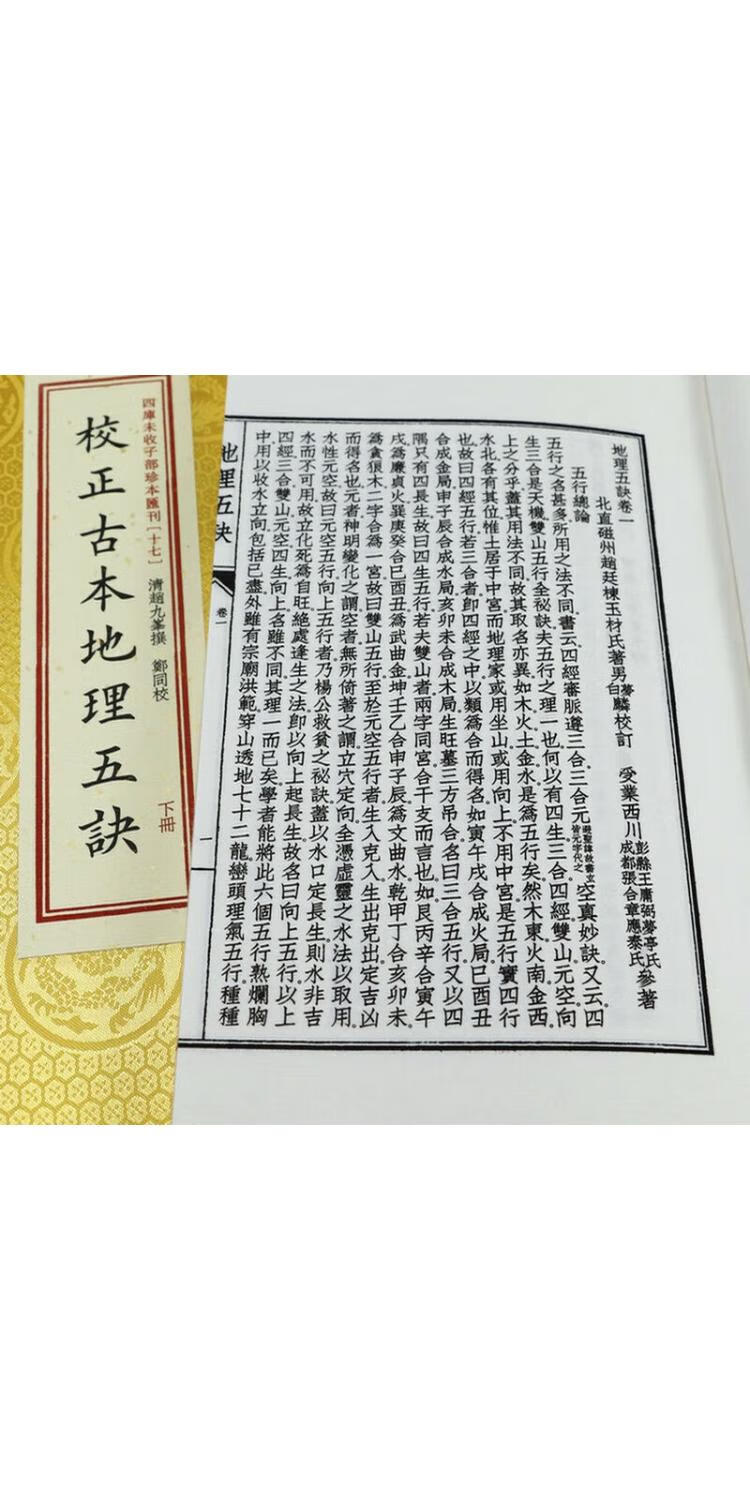 四庫未收子部珍本匯刊〔十七〕
清趙九峯撰 鄭同校
校正古本地理五訣
下冊
地理五訣卷一
北直磁州趙廷棟玉材氏著男夢白麟校訂 受業西川彭縣王庸弼夢亭氏成都張合章應泰氏參著
五行總論
五行之名甚多所用之法不同書云四經審脈遵三合三合元避聖諱故書文皆元字代之空真妙訣又云四
生三合是天機雙山五行全祕訣夫五行之理一也何以有四生三合四經雙山元空向
上之分乎蓋其用法不同故其取名亦異如木火土金水是為五行矣然木東火南金西
水北各有其位惟土居于中宮而地理家或用坐山或用向上不用中宮是五行實四行
也故曰四經五行若三合者卽四經之中以類為合而得名如寅午戌合成火局巳酉丑
合成金局申子辰合成水局亥卯未合成木局生旺墓三方吊合名曰三合五行又以四
隅只有四長生故曰四生五行若夫雙山者兩字同宮合干支而言也如艮丙辛合寅午
戌為廉貞火巽庚癸合巳酉丑為武曲金坤壬乙合申子辰為文曲水乾甲丁合亥卯未
為貪狼木二字合為一宮故曰雙山五行至於元空五行者生入克入生出克出定吉凶
而得名也元者神明變化之謂空者無所倚著之謂立穴定向全憑虛靈之水法以取用
水性元空故曰元空五行向上五行者乃楊公救貧之祕訣蓋以水口定長生則水非吉
水而不可用故立化死為自旺絶處逢生之法卽以向上起長生故名曰向上五行以上
四經三合雙山元空四生向上名雖不同其理一而已矣學者能將此六個五行熟爛胸
中用以收水立向包括已盡外雖有宗廟洪範穿山透地七十二龍巒頭理氣五行種種
地理五訣
卷一
一